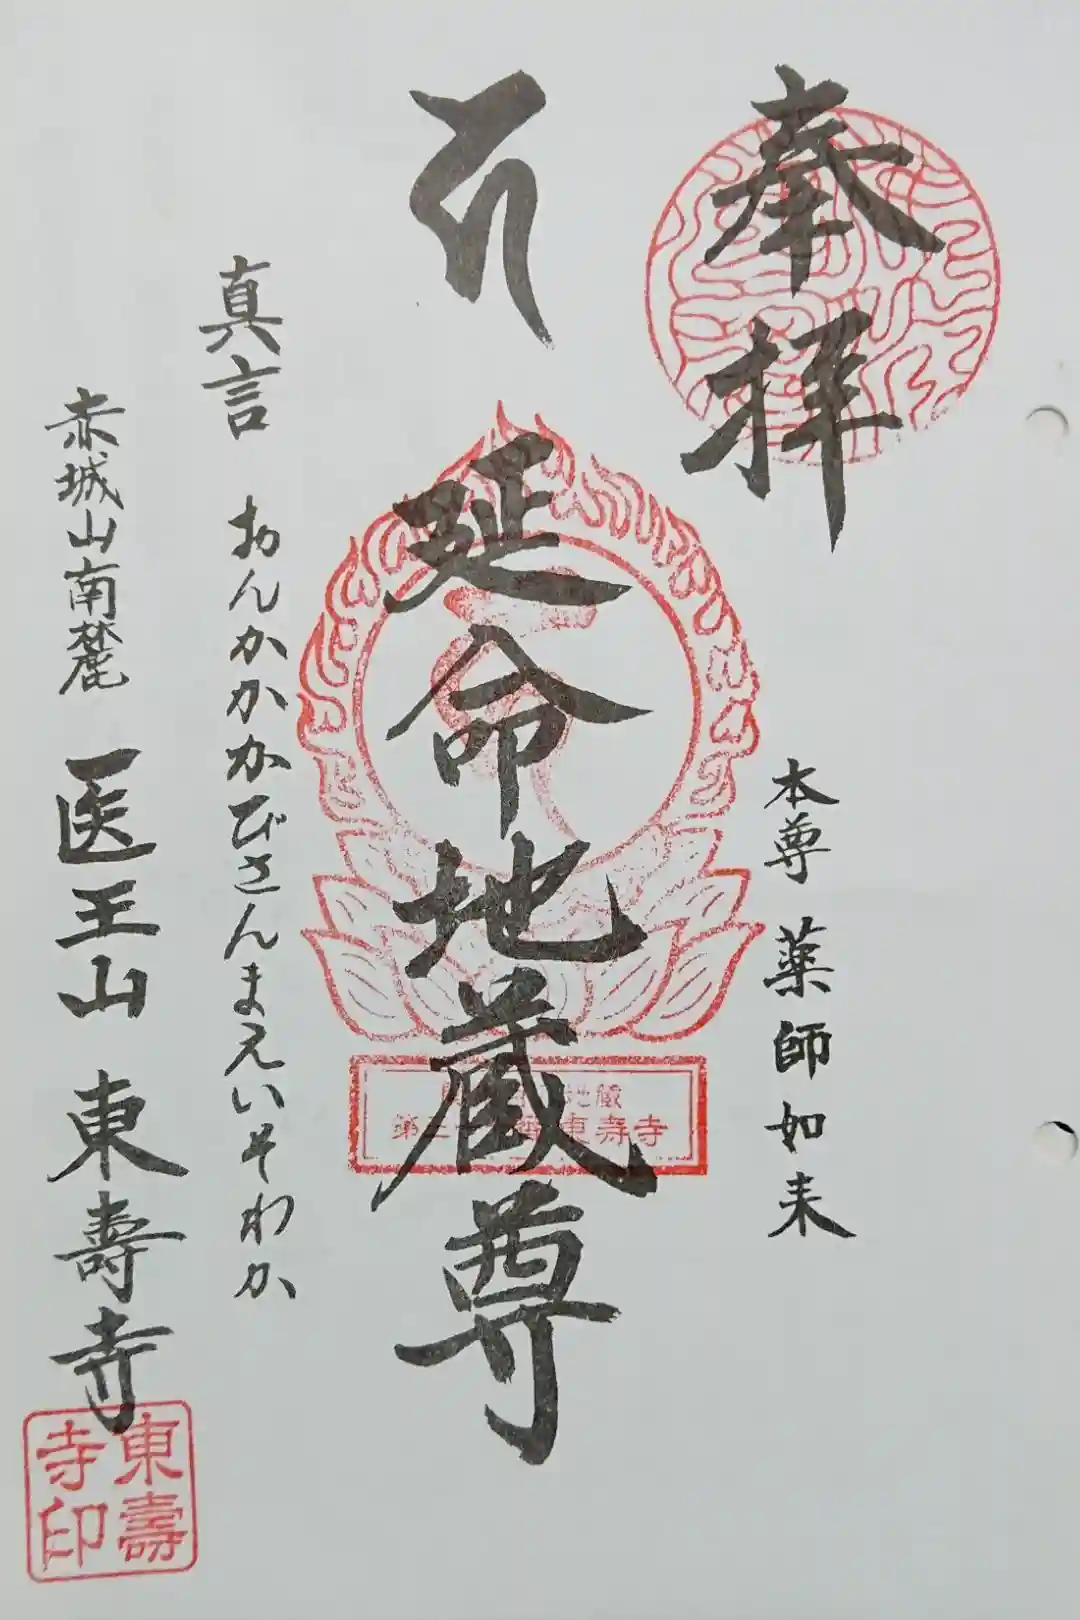 奉拝
本尊 薬師如来
延命地蔵尊
地蔵
東寿寺
真言 おんかかかびさんまえいそわか
赤城山南麓 医王山 東壽寺
東壽
寺印